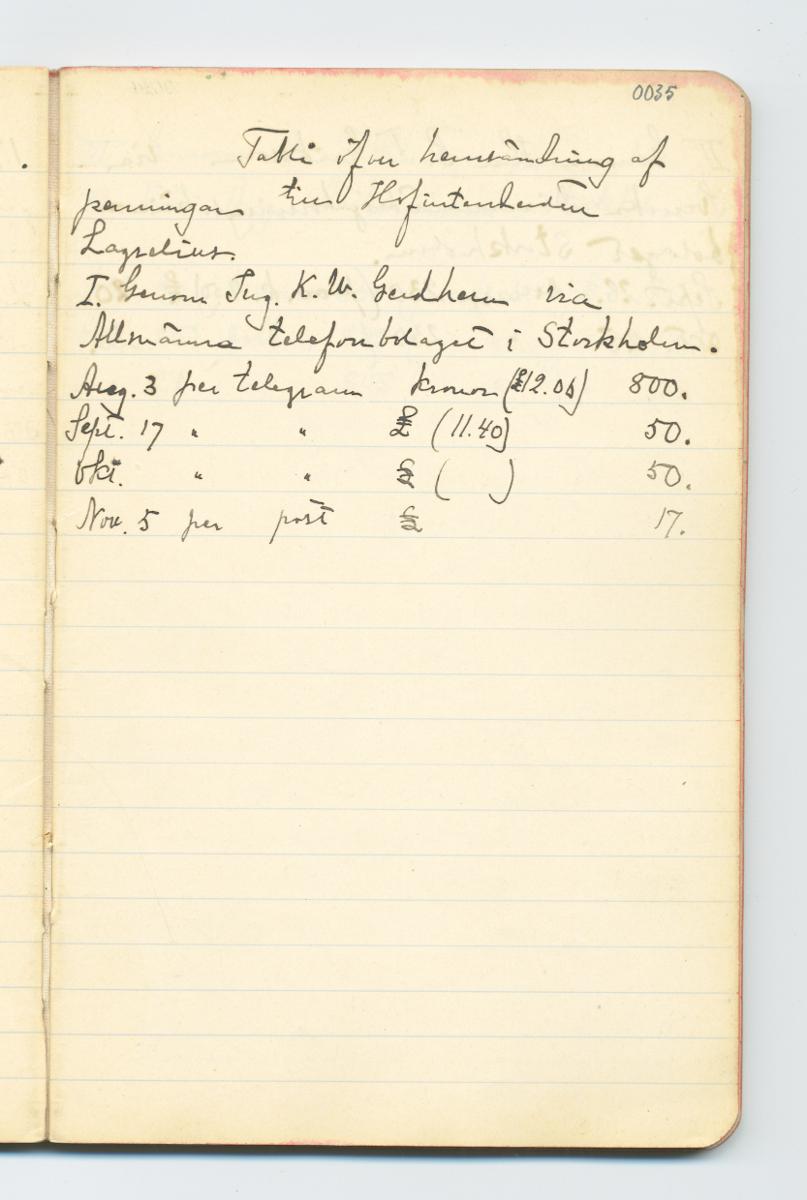 0035
Tablå öfver hemsändning af
penningar till Hofintendenten
Lagrelius.
I. Genom Ing. K. W. Gerdhem via
Allmänna telefonbolaget i Stockholm.
Aug. 3 per telegram kronor (£12.0) 800.
Sept. 17 " " £ (11.40) 50.
Okt. " " £ ( ) 50.
Nov. 5 per post £ 17.